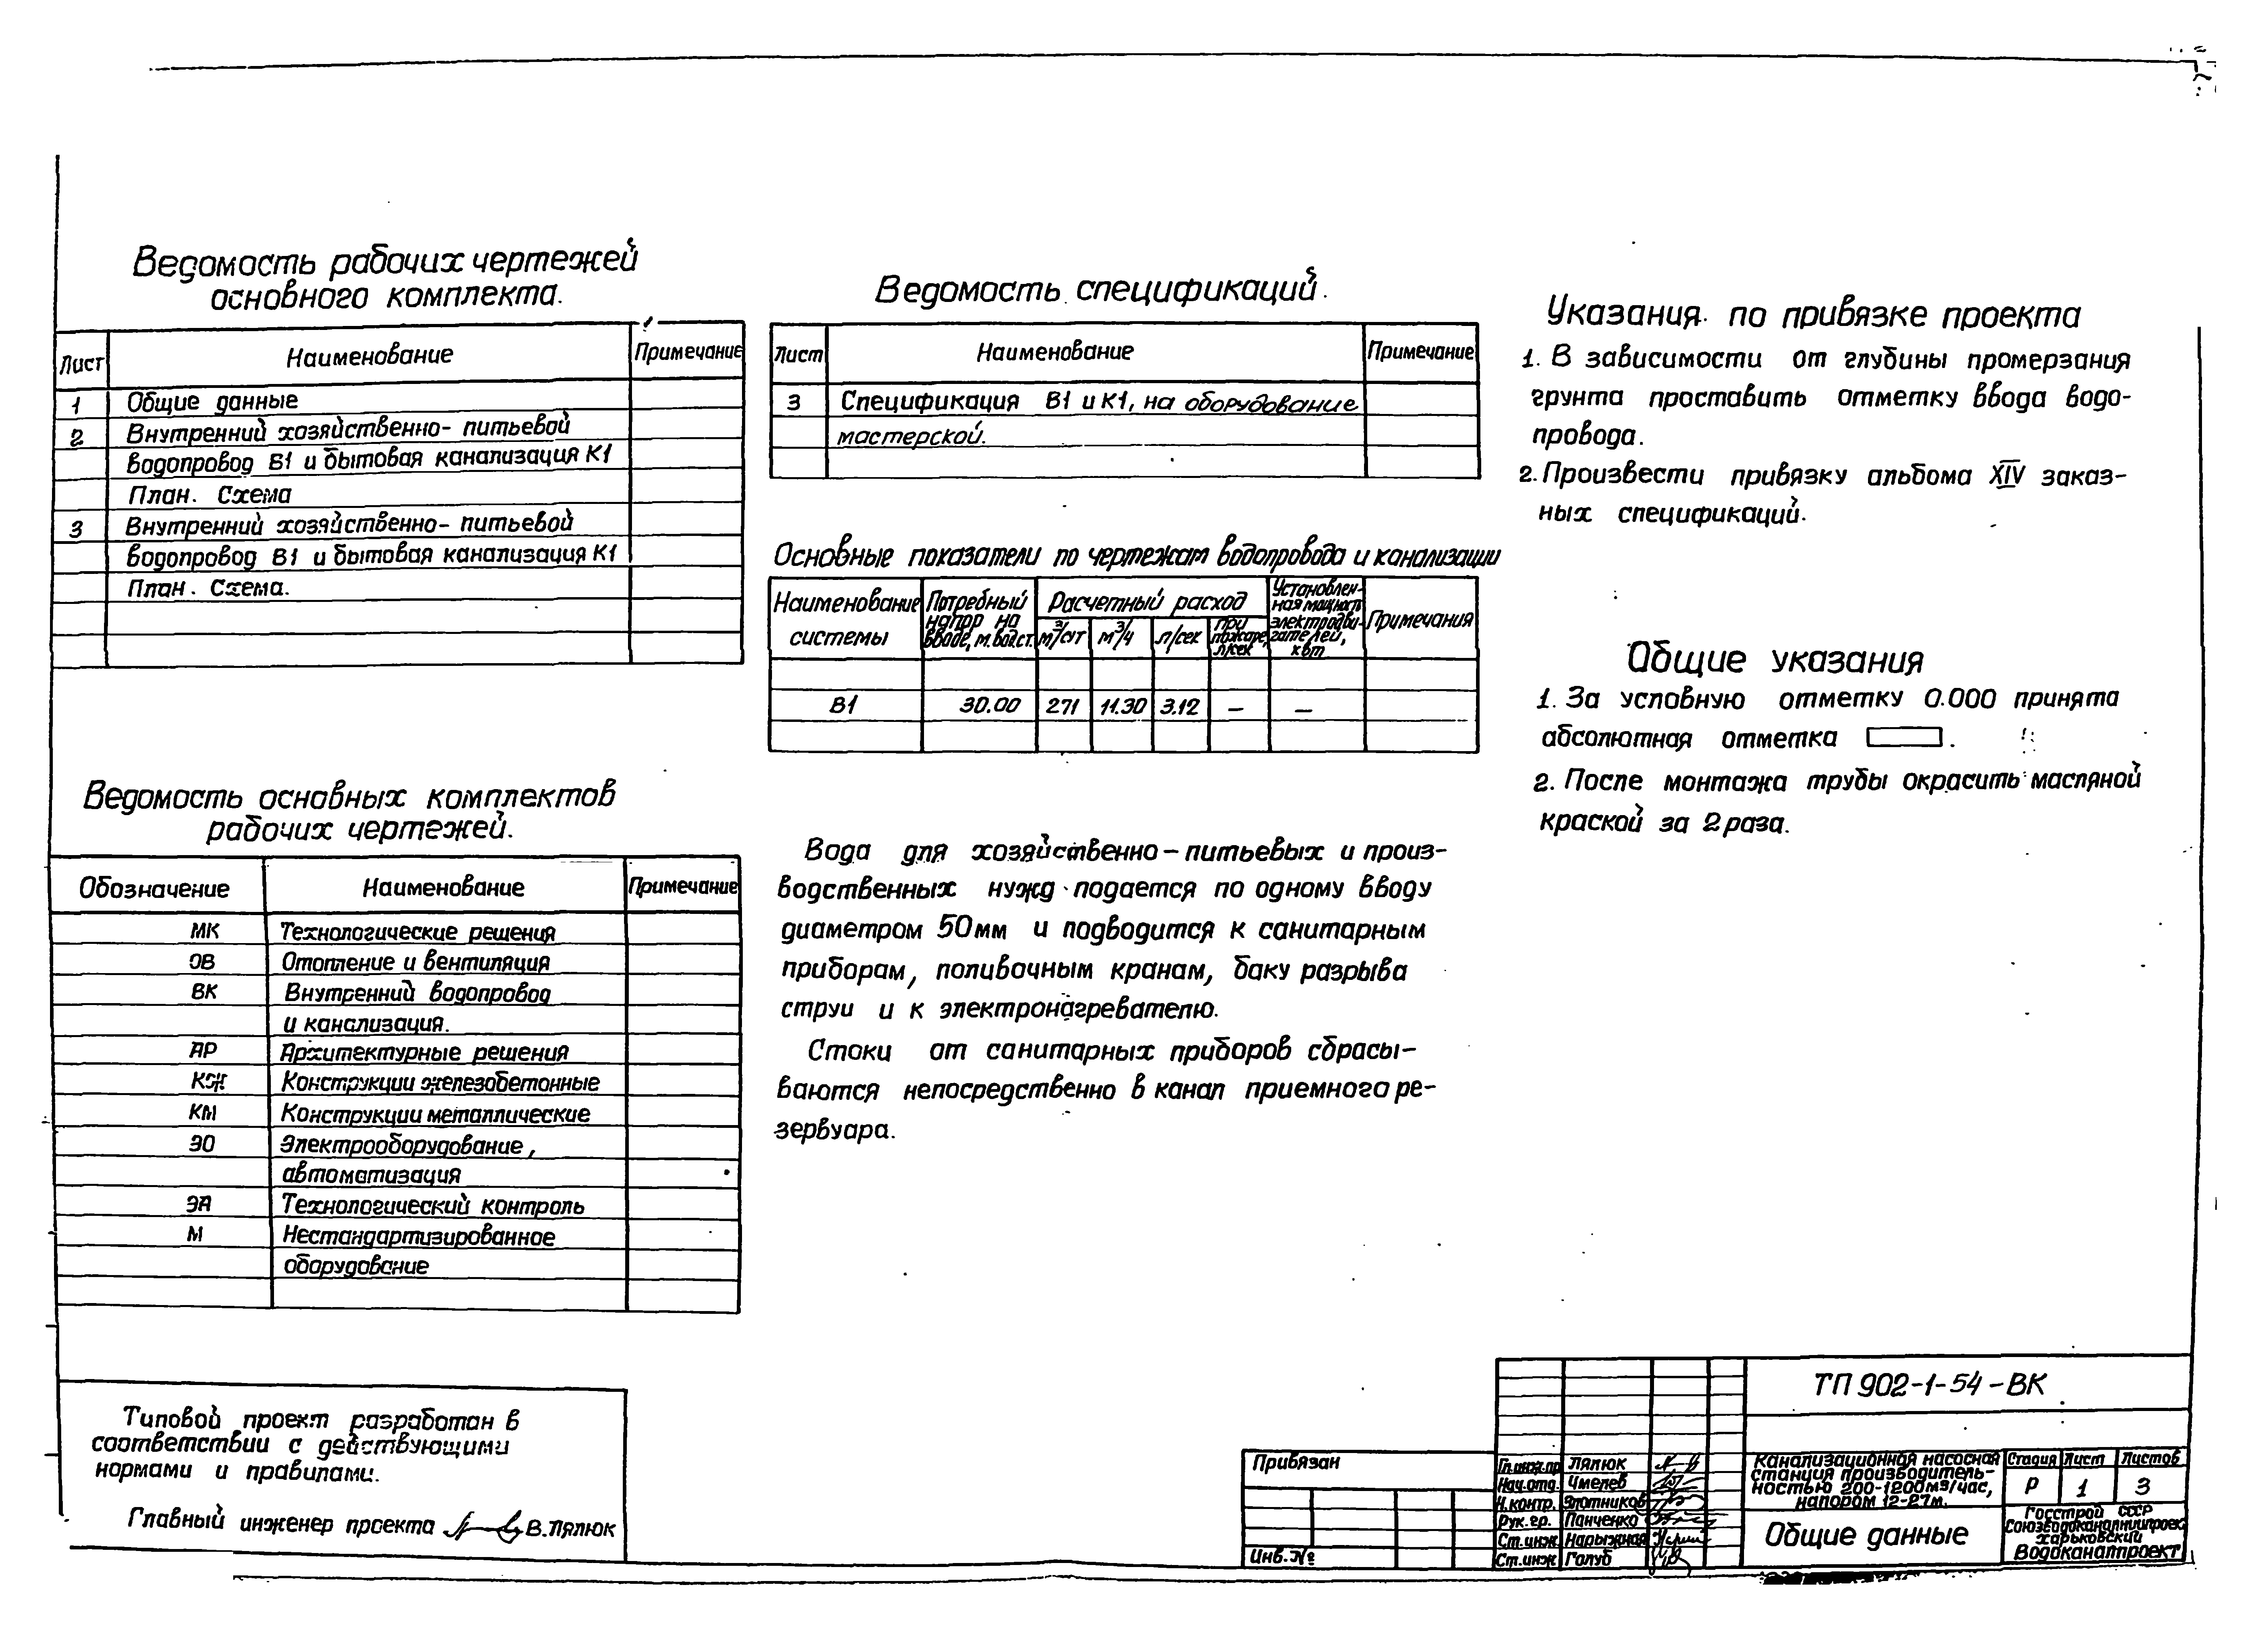 Ведомость рабочих чертежей
основного комплекта.
Лист Наименование Примечание
1 Общие данные
2 Внутренний хозяйственно- питьевой
водопровод В1 и бытовая канализация К1
План. Схема
3 Внутренний хозяйственно- питьевой
водопровод В1 и бытовая канализация К1
План. Схема.
Ведомость основных комплектов
рабочих чертежей.
Обозначение Наименование Примечание
МК Технологические решения
ОВ Отопление и вентиляция
ВК Внутренний водопровод
и канализация.
АР Архитектурные решения
КЖ Конструкции железобетонные
КМ Конструкции металлические
ЭО Электрооборудование,
автоматизация
ЭА Технологический контроль
М Нестандартизированное
оборудование
Типовой проект разработан в
соответствии с действующими
нормами и правилами.
Главный инженер проекта В. Лялюк
Ведомость спецификаций.
Лист Наименование Примечание
3 Спецификация В1 и К1, на оборудование
мастерской.
Основные показатели по чертежам водопровода и канализации
Наименование системы
Потребный напор на вводе, м.вод.ст.
Расчетный расход
м³/сут м³/ч л/сек при пожаре, л/сек
Установленная мощност электродви-гателей, квт
Примечания
В1 30.00 271 11.30 3.12 — —
Вода для хозяйственно-питьевых и произ-
водственных нужд подается по одному вводу
диаметром 50мм и подводится к санитарным
приборам, поливочным кранам, баку разрыва
струи и к электронагревателю.
Стоки от санитарных приборов сбрасы-
ваются непосредственно в канал приемного ре-
зервуара.
Указания по привязке проекта
1. В зависимости от глубины промерзания
грунта проставить отметку ввода водо-
провода.
2. Произвести привязку альбома XIV заказ-
ных спецификаций.
Общие указания
1. За условную отметку 0.000 принята
абсолютная отметка .
2. После монтажа трубы окрасить масляной
краской за 2 раза.
Привязан
Инв.№
Гл.инж.пр Лялюк
Нач.отд. Чмелев
Н.контр. Злотников
Рук.гр. Панченко
Ст.инж. Нарыжная
Ст.инж Голуб
ТП 902-1-54-ВК
Канализационная насосная
станция производитель-
ностью 200-1200м³/час,
напором 12-27м.
Стадия Лист Листов
Р 1 3
Общие данные
Госстрой СССР
Союзводоканалниипроект
Харьковский
Водоканалпроект